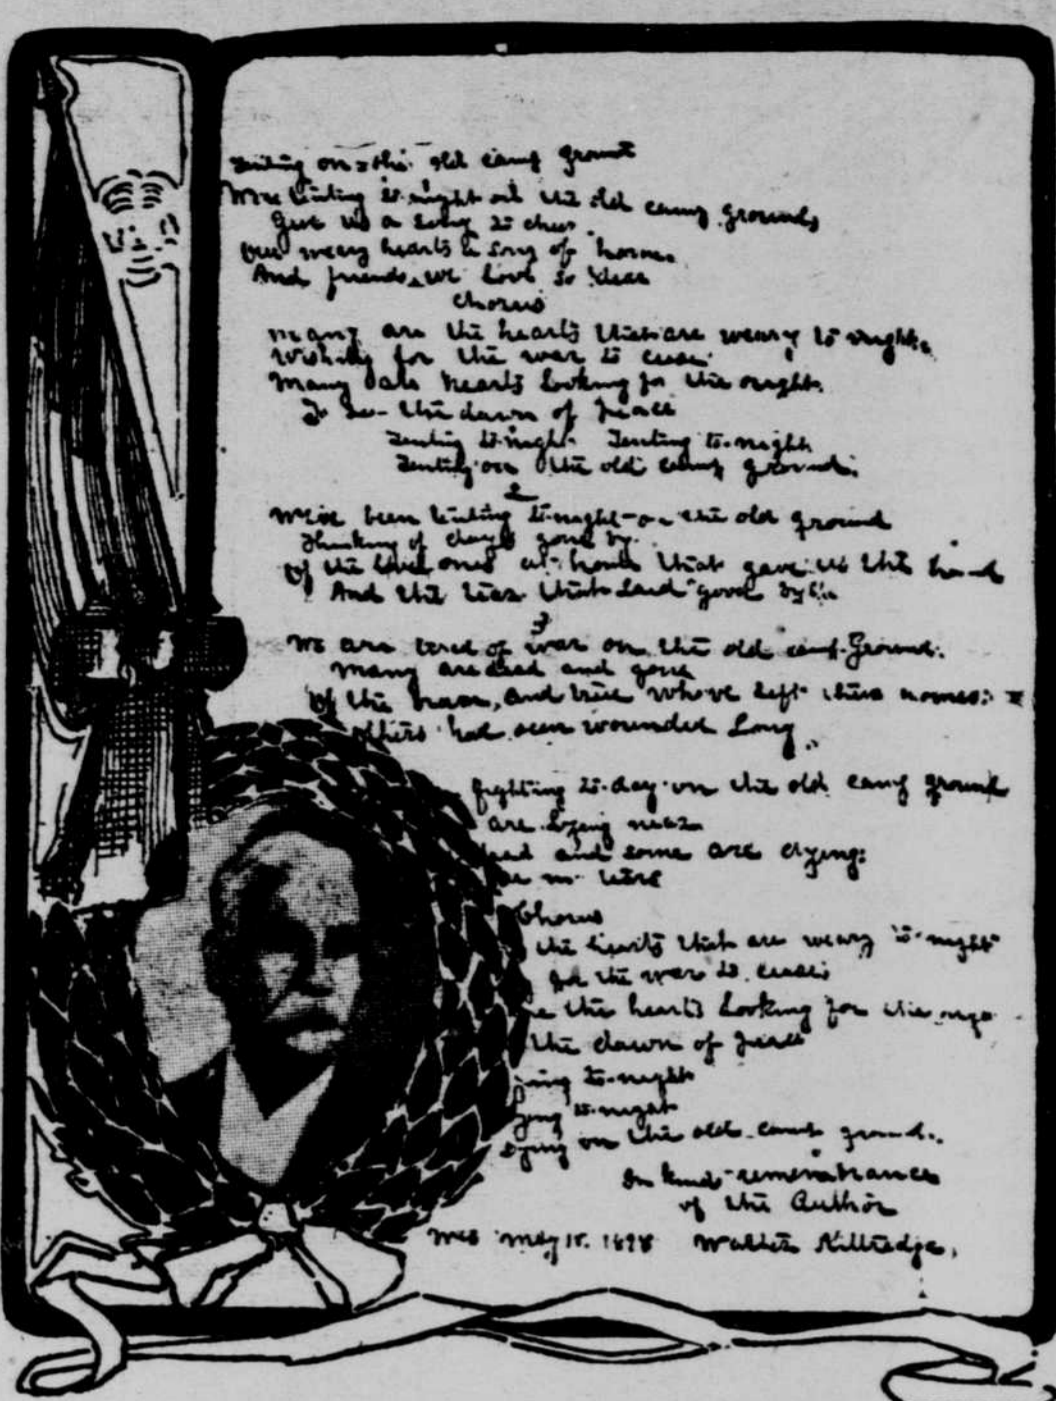 Tenting on the old camp ground
We're tenting to-night on the old camp grounds
Give us a song to cheer
Our weary hearts a song of home
And friends we love so dear
Chorus
Many are the hearts that are weary to night
Wishing for the war to cease
Many are hearts looking for the right
To see the dawn of peace
Tenting to-night Tenting to-night
Tenting on the old camp ground.
2
We've been tenting to-night on the old ground
Thinking of days gone by
Of the loved ones at home that gave us the hand
And the tear that said good bye
3
We are tired of war on the old camp Ground.
Many are dead and gone
Of the brave, and true who've left their homes
Others have been wounded long
fighting to-day on the old camp ground
are lying near
dead and some are dying
in tears
Chorus
the hearts that are weary to-night
for the war to cease
the hearts looking for the
the dawn of peace
ying to-night
ying to-night
Dying on the old camp ground.
In kind remembrance
of the Author
May 15. 1898 Walter Kittredge.